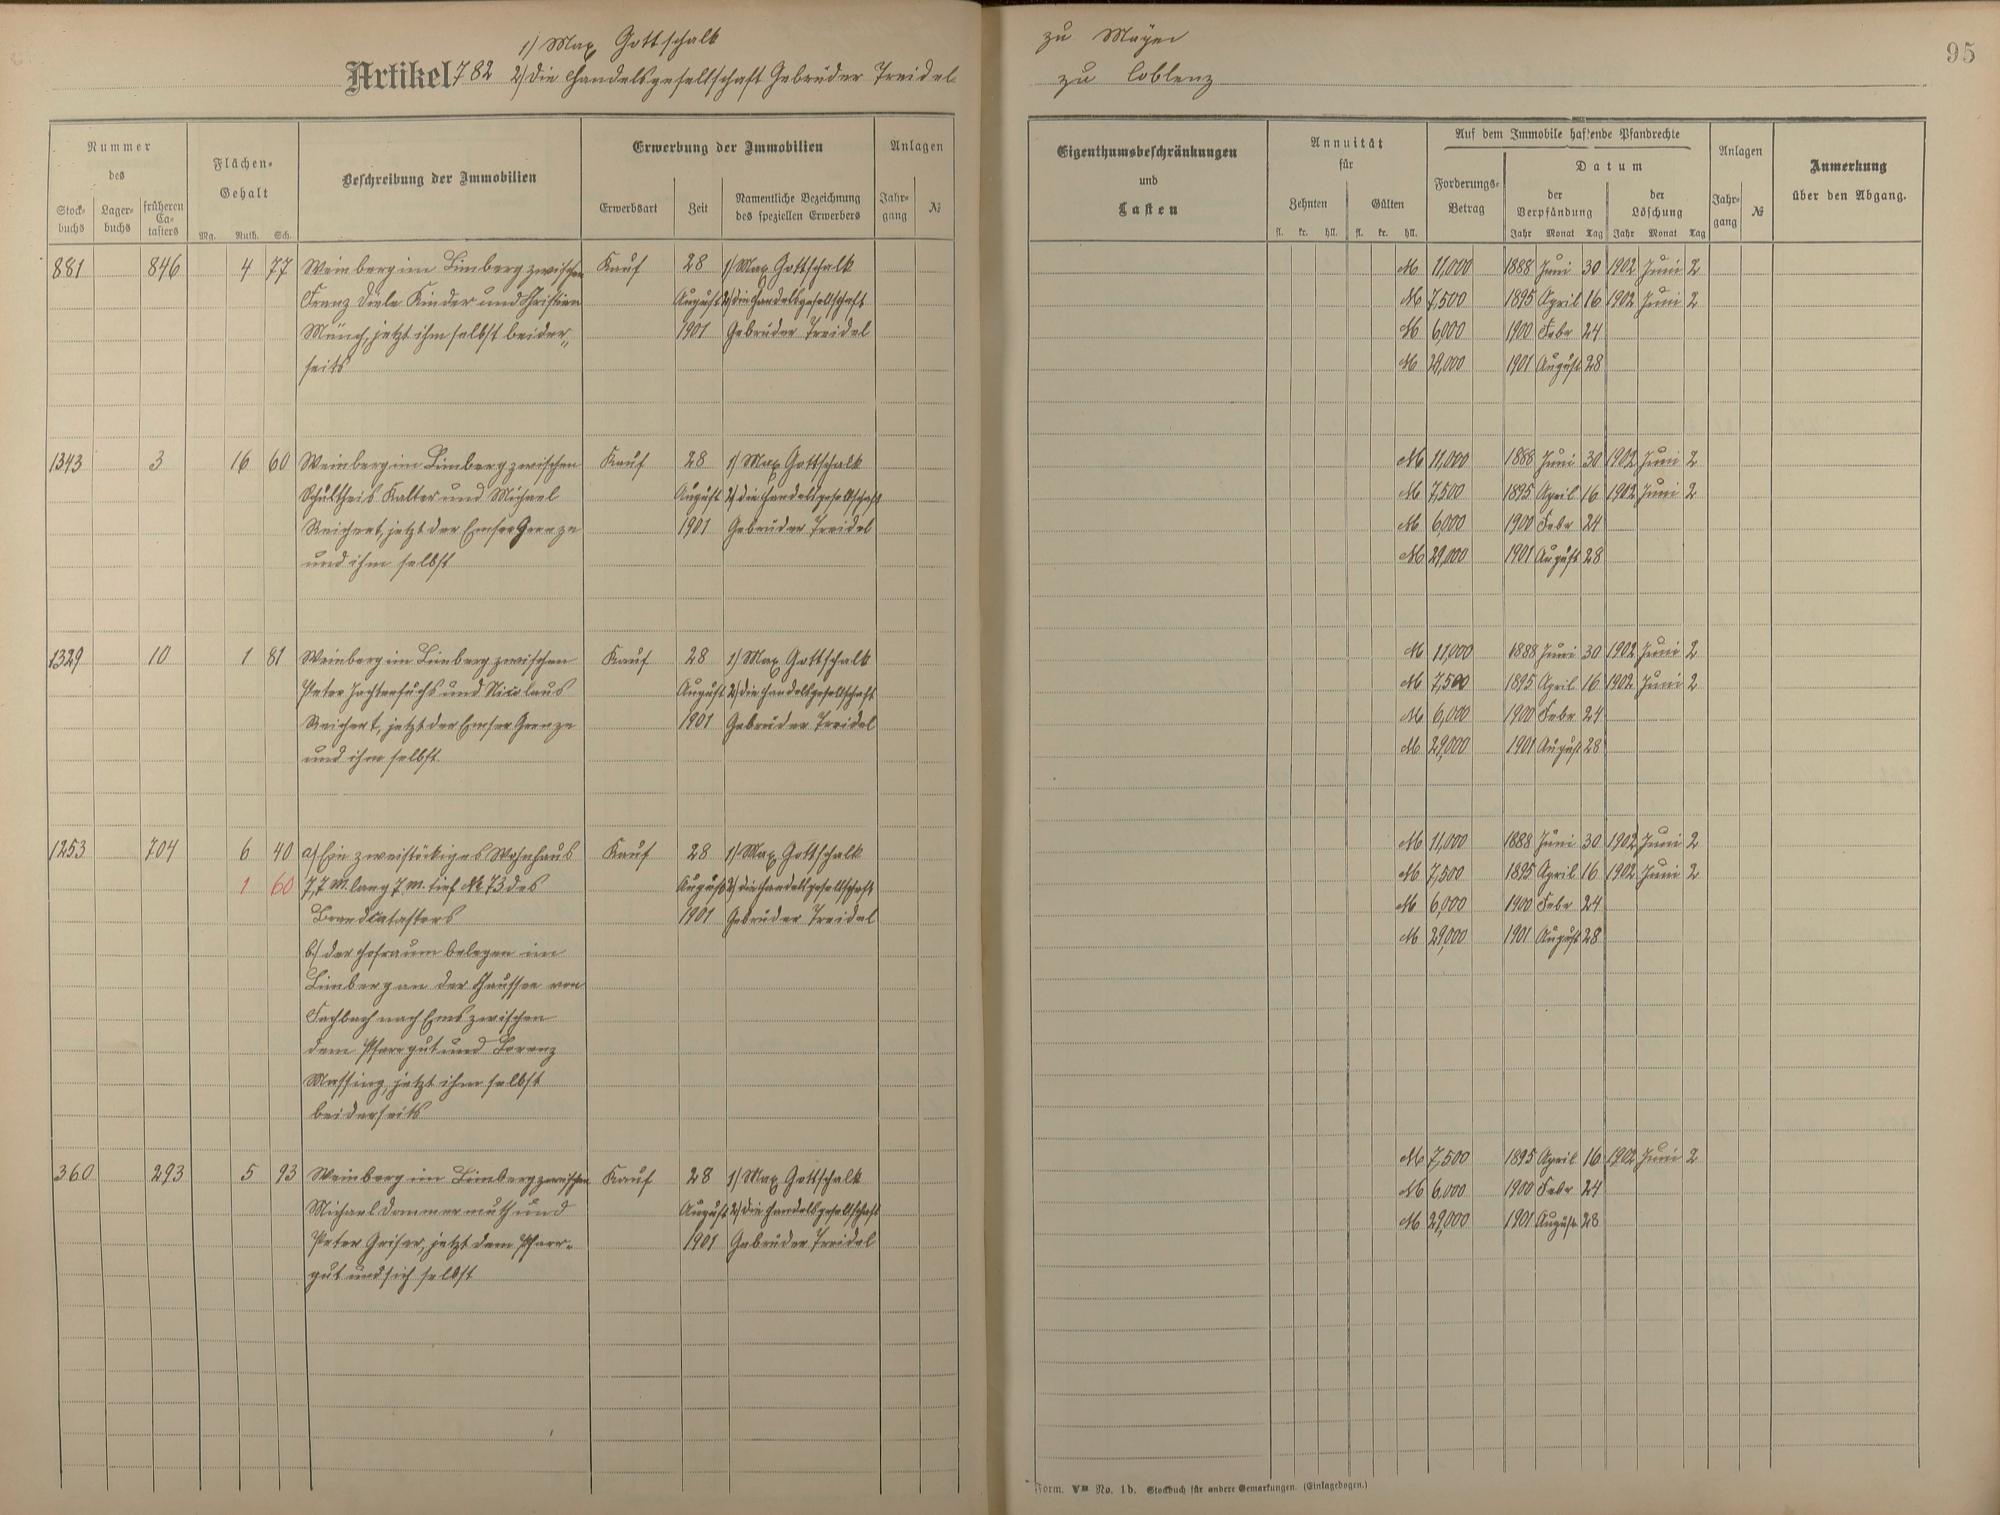 1) Max Gottschalk zu Mayen
Artikel 782 2) die Handelsgesellschaft Gebrüder Treidel zu Coblenz
95
Nummer
des
Stock-
buchs
Lager-
buchs
früheren
Ca-
tasters
Flächen-
Gehalt
Mg. Ruth. Sch.
Beschreibung der Immobilien
Erwerbung der Immobilien
Erwerbsart
Zeit
Namentliche Bezeichnung
des speziellen Erwerbers
Anlagen
Jahr-
gang
№
Eigenthumsbeschränkungen
und
Lasten
Annuität
für
Zehnten
Gülten
fl. kr. hll. fl. kr. hll.
Auf dem Immobile haftende Pfandrechte
Forderungs-
Betrag
Datum
der
Verpfändung
der
Löschung
Jahr Monat Tag Jahr Monat Tag
Anlagen
Jahr-
gang
№
Anmerkung
über den Abgang.
881 846 4 77 Weinberg im Limberg zwischen Kauf 28 1) Max Gottschalk
Franz Diele Kinder und Christian August 2) die Handelsgesellschaft
Münch, jetzt ihm selbst beider- 1901 Gebrüder Treidel
seits
M 11,000 1888 Juni 30 1902 Juni 2
M 7,500 1895 April 16 1902 Juni 2
M 6,000 1900 Febr 24
M 29,000 1901 August 28
1343 3 16 60 Weinberg im Limberg zwischen Kauf 28 1) Max Gottschalk
Schultheis Kalter und Michael August 2) die Handelsgesellschaft
Reichert, jetzt der Emser Grenze 1901 Gebrüder Treidel
und ihm selbst
M 11,000 1888 Juni 30 1902 Juni 2
M 7,500 1895 April 16 1902 Juni 2
M 6,000 1900 Febr 24
M 29,000 1901 August 28
1329 10 1 81 Weinberg im Limberg zwischen Kauf 28 1) Max Gottschalk
Peter und Nicolaus August 2) die Handelsgesellschaft
Reichert, jetzt der Emser Grenze 1901 Gebrüder Treidel
und ihm selbst.
M 11,000 1888 Juni 30 1902 Juni 2
M 7,500 1895 April 16 1902 Juni 2
M 6,000 1900 Febr 24
M 29,000 1901 August 28
1253 704 6 40 a) Ein zweistöckiges Wohnhaus Kauf 28 1) Max Gottschalk
1 60 7,7 m. lang 7 m. tief № 73 des August 2) die Handelsgesellschaft
Brandcatasters 1901 Gebrüder Treidel
b) der Hofraum belegen im
Limberg an der Chaussee von
Fachbach nach Ems zwischen
dem Pfarrgut und Lorenz
Massing, jetzt ihm selbst
beiderseits
M 11,000 1888 Juni 30 1902 Juni 2
M 7,500 1895 April 16 1902 Juni 2
M 6,000 1900 Febr 24
M 29,000 1901 August 28
360 293 5 93 Weinberg im Limberg zwischen Kauf 28 1) Max Gottschalk
Michael Dommermuth und August 2) die Handelsgesellschaft
Peter jetzt dem Pfarr- 1901 Gebrüder Treidel
gut und sich selbst
M 7,500 1895 April 16 1902 Juni 2
M 6,000 1900 Febr 24
M 29,000 1901 August 28
Form. No. 1b. Stockbuch für andere Gemarkungen. (Einlagebogen.)